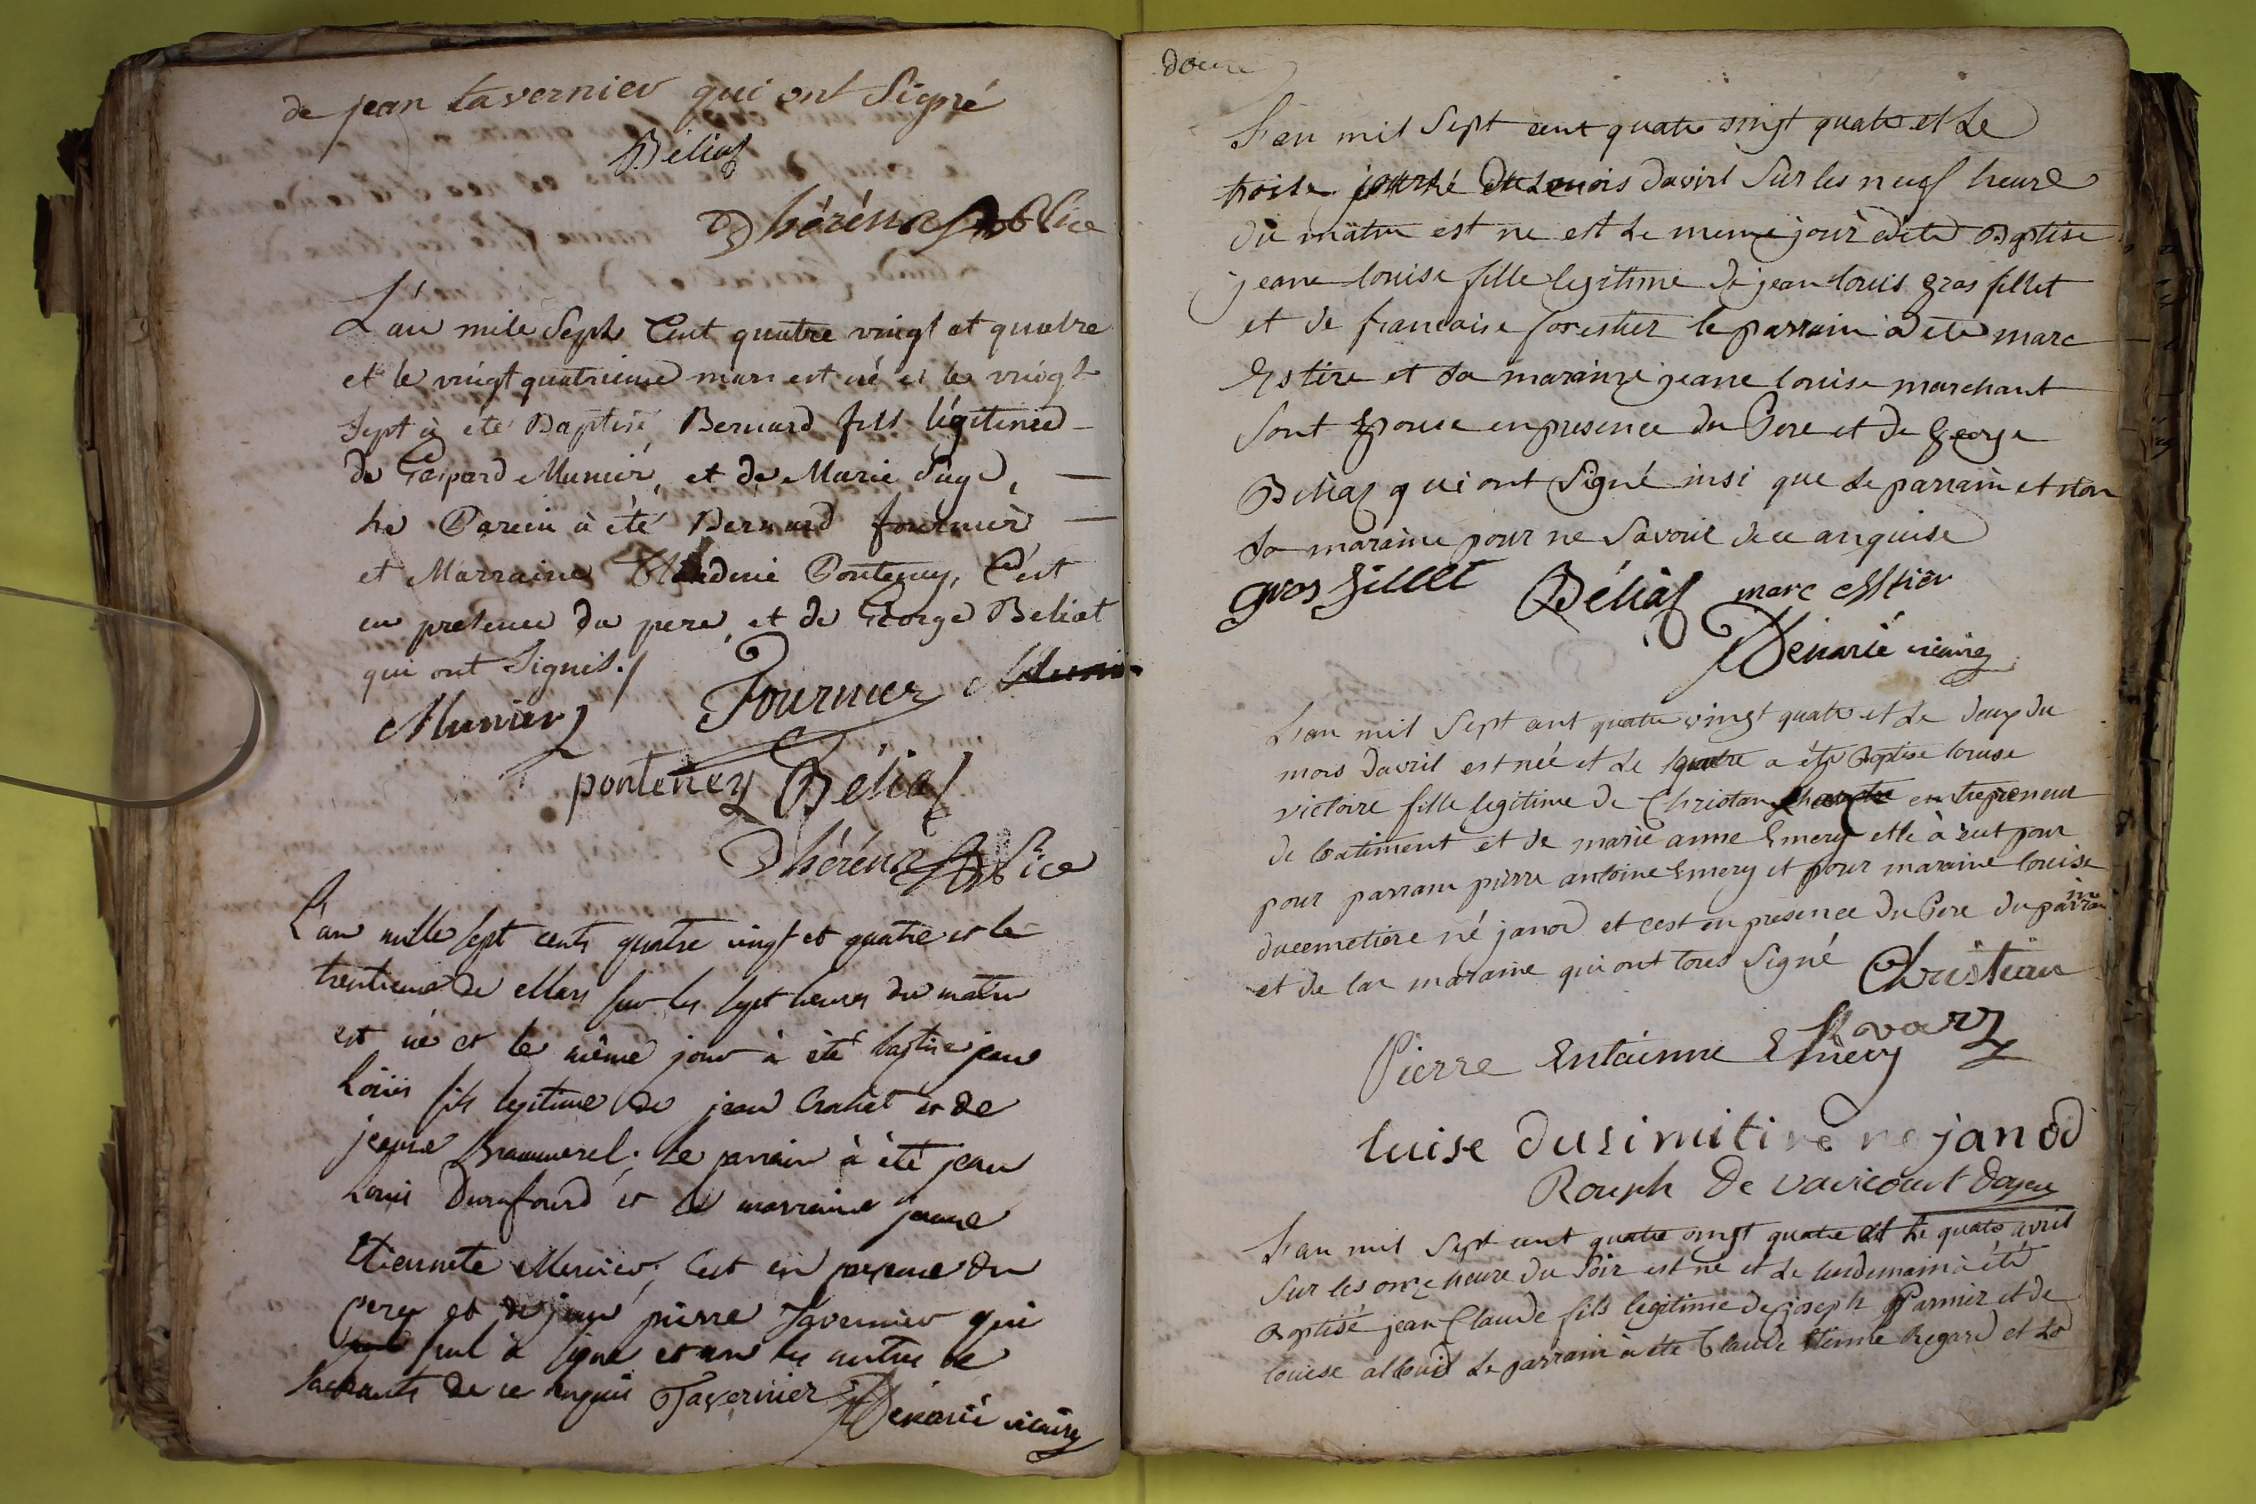 de jean tavernier qui ont Signé
Béliaz
Dhérens Vice
L'an mile Sept Cent quatre vingt et quatre
et le vingt quatrieme mars est né et le vingt
sept à été Baptisé, Bernard fils légitime
de Gaspard Munier, et de Marie Puge,
le Parein à été Bernard fournier
et Marraine Claudine Ponteney, C'est
en présence du pere, et de George Beliat
qui ont Signés./
Munier Fournier Munier
ponteney Béliaz
Dhérens Vice
L'an mille sept cents quatre vingt et quatre et le
trentieme de Mars sur les sept heures du matin
est né et le même jour à été baptisé jean
Loüis fils legitime de jean et de
jeanne ; le parrain à été jean
Louis Durafourd et la marraine jeanne
Etiennete Mercier; c'est en presence du
pere et de jean pierre Tavernier qui
seul à signé et non les autres ne
sachants de ce enquis Tavernier Dénarié vicaire
douze
L'an mil Sept cent quatre vingt quatre et Le
troise du mois davirl Sur les neuf heure
du matin est ne et Le meme jour à eté Baptise
jeane louise fille legitime de jean louis gros fillet
et de francoise forestier le parrain à eté marc
Estire et Sa marainne jeane louise marchant
Sont Epouse en presence du Pere et de George
Béliaz qui ont Signé insi que Le parrain et non
Sa maraine pour ne Savoir de ce anquise
gros fillet Béliaz marc
Dénarié vicaire
L'an mil Sept cent quatre vingt quatre et Le deux du
mois davril est née et Le quatre a été Baptise louise
victoire fille legitime de Christian entrepreneur
de batiment et de marie anne Emery elle à eut pour
pour parrain pierre antoine Emery et pour maraine louise
ducemetiere né janod et cest en presence du Pere du parrain
et de lar maraine qui ont tous Signé Christian
Pierre Entainne Emery
luise dusimitire ne janod
Rouph De varicourt doyen
L'an mil Sept cent quatre vingt quatre et Le quatre avril
Sur les onze heure du Soir est né et Le lendemain à été
Baptisé jean Claude fils legitime de joseph Parmier et de
louise Le parrain à eté Claude Etienne Regard et La